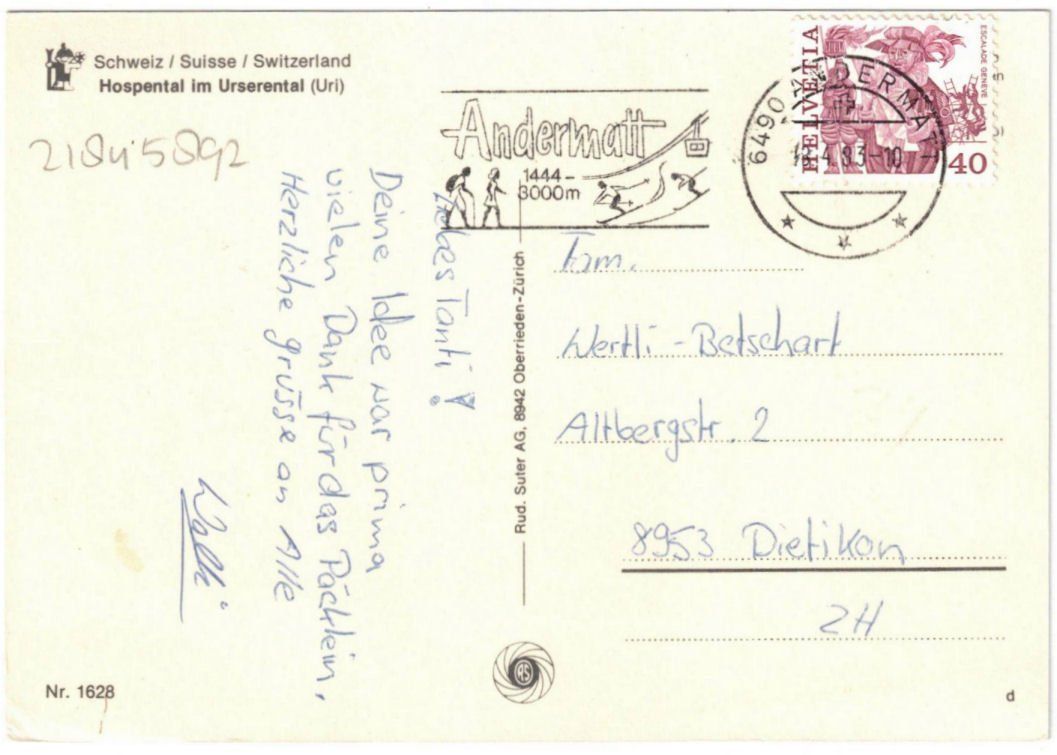 Schweiz / Suisse / Switzerland
Hospental im Urserental (Uri)
218045892
Liebes Tanti!
Deine Idee war prima
vielen Dank für das Päcklein,
Herzliche grüsse an Alle
Walti
Nr. 1628
Rud. Suter AG, 8942 Oberrieden-Zürich
RS
Andermatt
1444 -
3000m
6490 ANDERMATT
.4.83-10
HELVETIA
ESCALADE GENÈVE
40
Fam.
Wertli - Betschart
Altbergstr. 2
8953 Dietikon
ZH
d